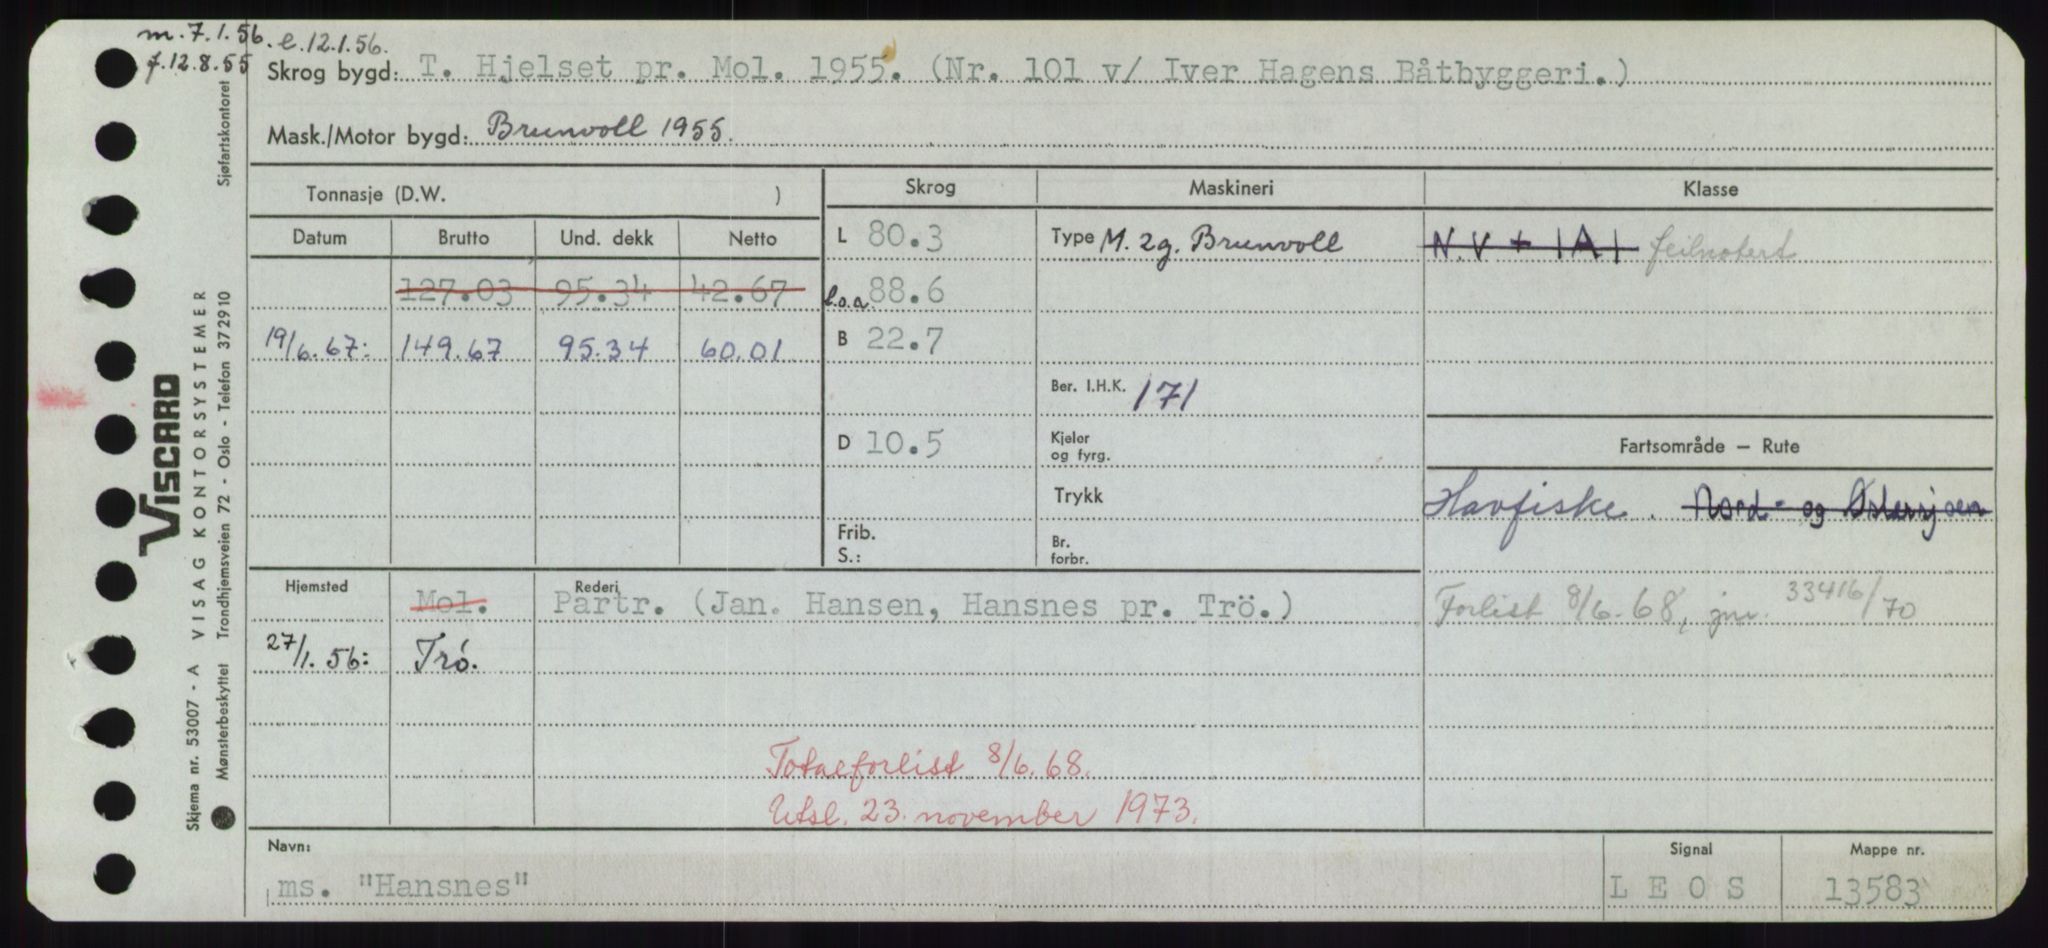 m. 7.1.56. e. 12.1.56.
f. 12.8.55
Skrog bygd: T. Hjelset pr. Mol. 1955. (Nr. 101 v/ Iver Hagens Båtbyggeri.)
Mask./Motor bygd: Brunvoll 1955.
Tonnasje (D.W. )
Skrog Maskineri Klasse
Datum Brutto Und. dekk Netto
L 80.3 Type M. 2g. Brunvoll N.V + 1A1 feilnotert
127.03 95.34 42.67 l.o.a. 88.6
19/6.67: 149.67 95.34 60.01 B 22.7
Ber. I.H.K. 171
D 10.5 Kjeler og fyrg. Fartsområde – Rute
Trykk Havfiske. Nord- og Østersjøen
Frib. S.: Br. forbr.
Hjemsted Mol. Rederi Partr. (Jan. Hansen, Hansnes pr. Trö.) Forlist 8/6.68, jnr. 33416/70
27/1.56: Trö.
Totalforlist 8/6.68.
Utsl. 23. november 1973.
Navn: ms. "Hansnes" Signal LEOS Mappe nr. 13583
VISCARD
Skjema nr. 53007 - A VISAG KONTORSYSTEMER Sjøfartskontoret
Mønsterbeskyttet Trondhjemsveien 72 - Oslo - Telefon 372910